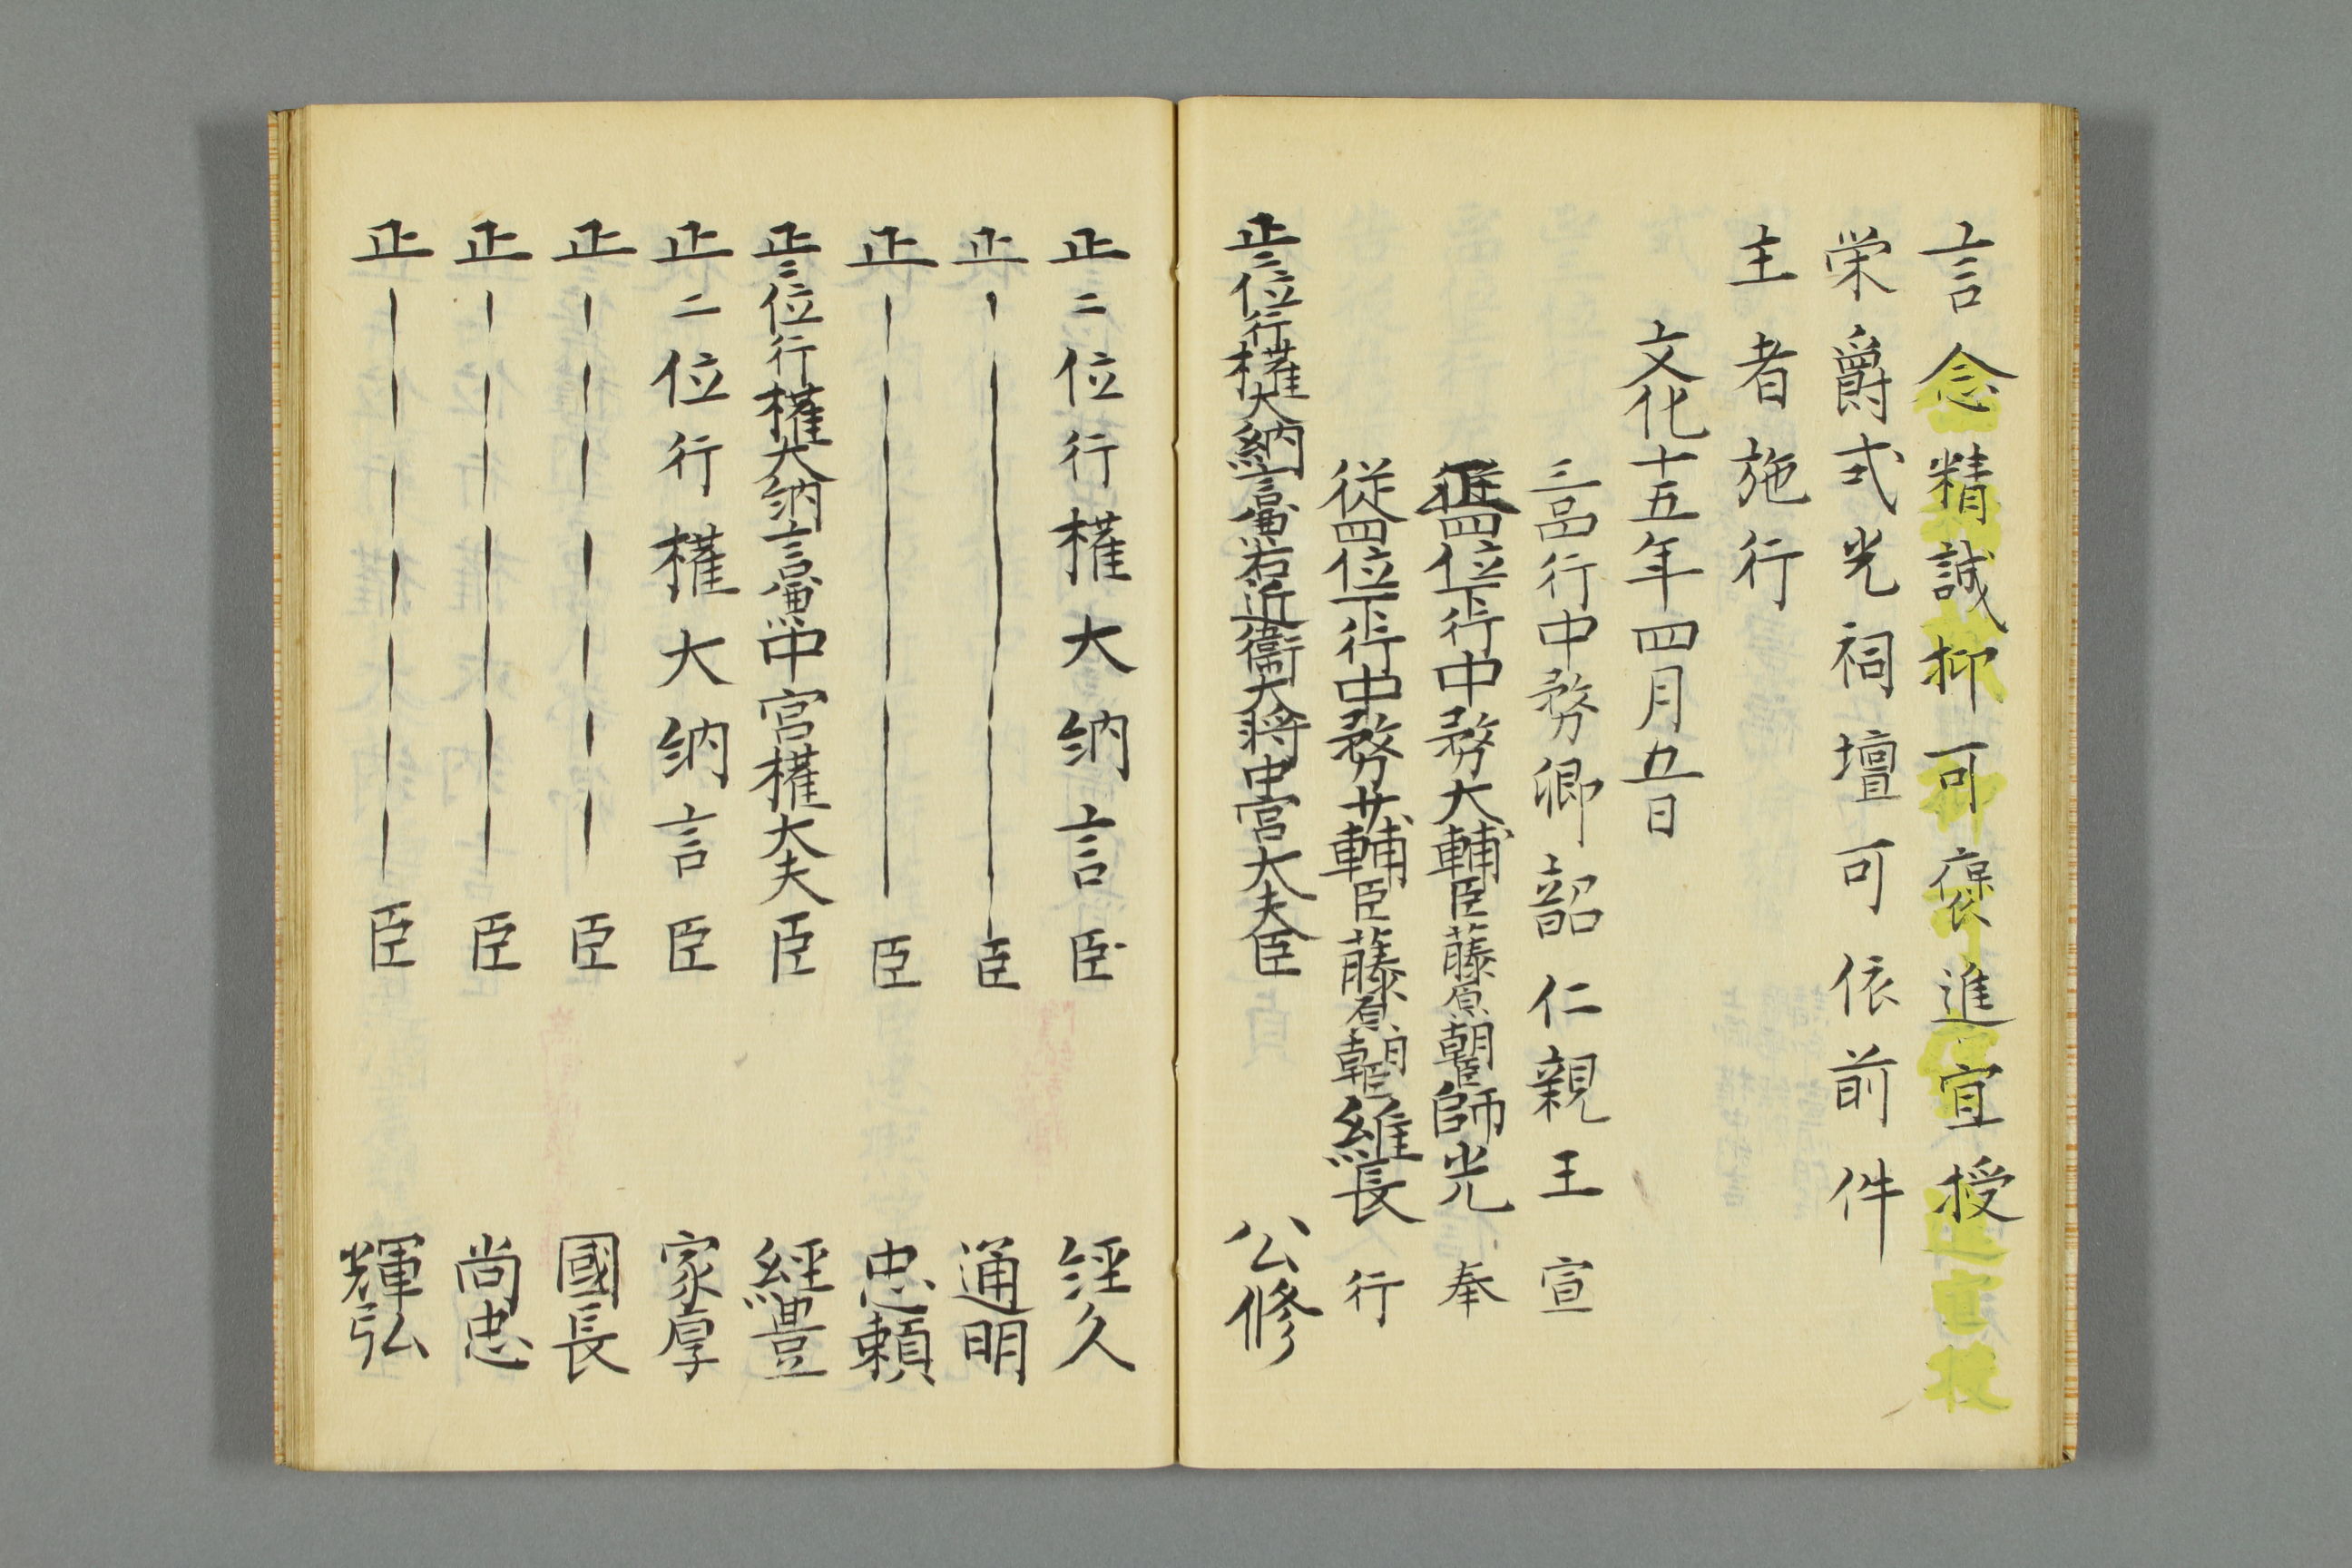 言念精誠抑可褒進宣授
栄爵式光祠壇可依前件
主者施行
文化十五年四月五日
三品行中務卿韶仁親王宣
正四位下行中務大輔臣藤原朝臣師光奉
従四位下行中務少輔臣藤原朝臣維長行
正二位行権大納言兼右近衛大将中宮大夫臣公修
正二位行権大納言臣経久
正臣通明
正臣忠頼
正二位行権大納言兼中宮権大夫臣經豊
正二位行権大納言臣家厚
正臣國長
正臣尚忠
正臣輝弘